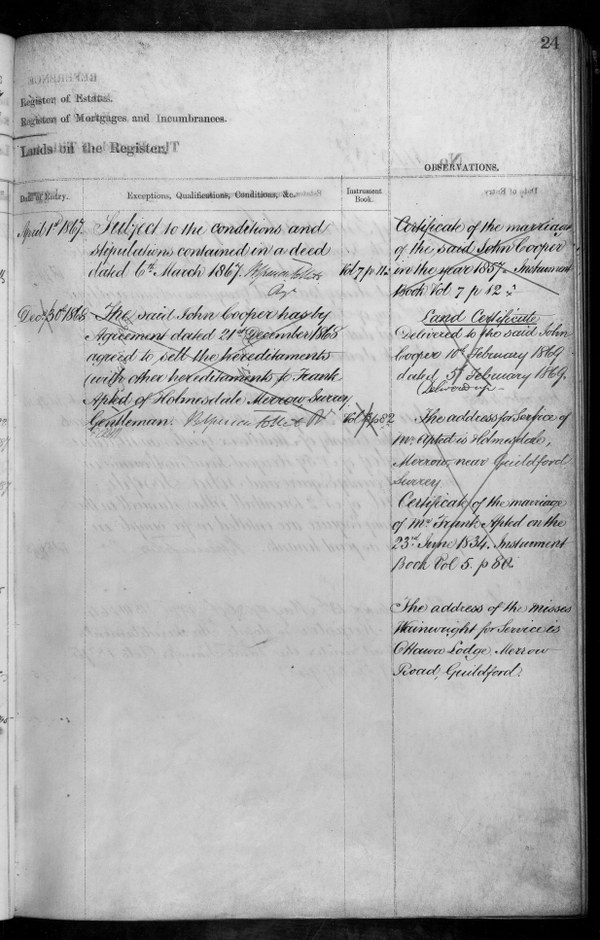 24
Register of Estates.
Register of Mortgages and Incumbrances.
Lands on the Register.
OBSERVATIONS.
Date of Entry.
Exceptions, Qualifications, Conditions, &c.
Instrument Book.
April 1st 1867
Subject to the conditions and
stipulations contained in a deed
dated 6th March 1867.
Vol 7 p 11
Decr 30th 1868
The said John Cooper has by
Agreement dated 21st December 1868
agreed to sell the hereditaments
(with other hereditaments) to Frank
Apted of Holmesdale Merrow Surrey
Gentleman.
Certificate of the marriage
of the said John Cooper
in the year 1857. Instrument
Book Vol 7 p 12
Land Certificate
Delivered to the said John
Cooper 10th February 1869
dated 5th February 1869.
The address for Service of
Mr Apted is Holmesdale,
Merrow, near Guildford
Surrey
Certificate of the marriage
of Mr Frank Apted on the
23rd June 1834. Instrument
Book Vol 5. p 80.
The address of the misses
Wainwright for Service is
Ottawa Lodge, Merrow
Road, Guildford.